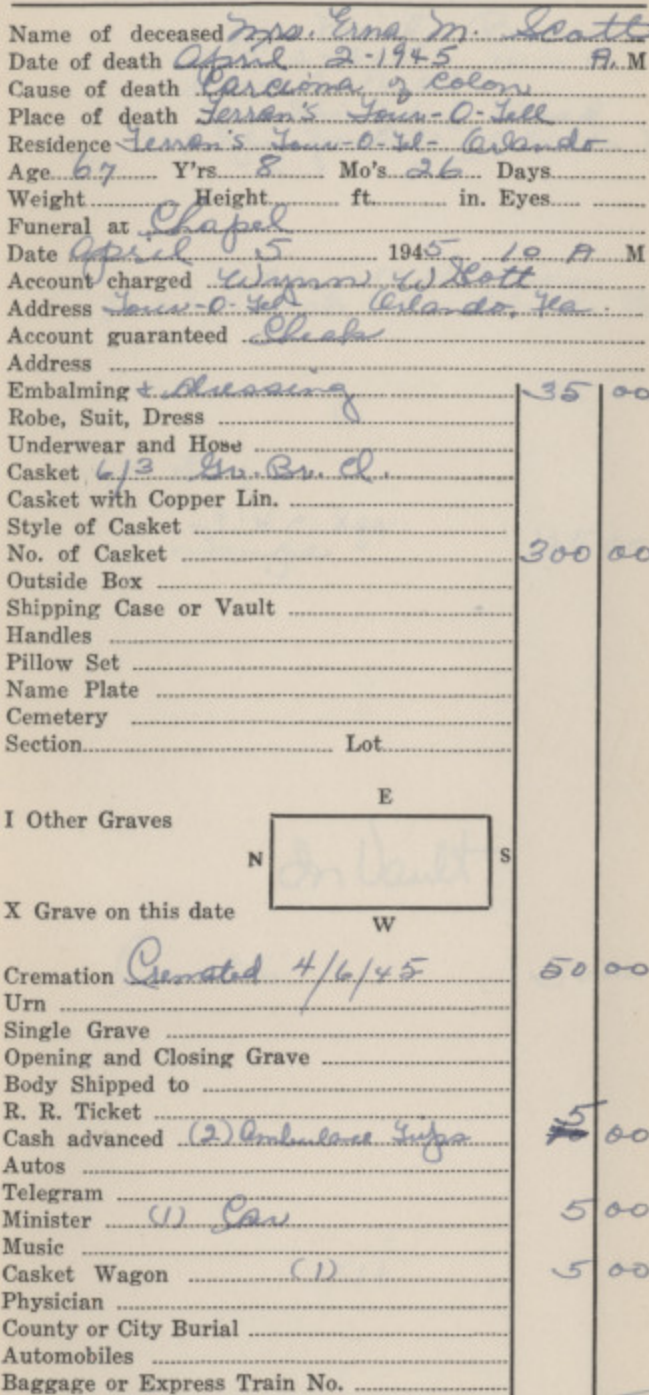 Name of deceased Mrs. Erna M. Scott
Date of death April 2-1945 A. M
Cause of death Carcioma of Colon
Place of death Ferran's Tour-O-Tell
Residence Ferran's Tour-O-Tel- Orlando
Age 67 Y'rs. 8 Mo's. 26 Days
Weight Height ft. in. Eyes
Funeral at Chapel
Date April 5 1945 10 A M
Account charged Wynn W Scott
Address Tour-O-Tel Orlando, Fla.
Account guaranteed
Address
Embalming & Dressing 35 00
Robe, Suit, Dress
Underwear and Hose
Casket 6/3 Gr. Br. Cl.
Casket with Copper Lin.
Style of Casket
No. of Casket 300 00
Outside Box
Shipping Case or Vault
Handles
Pillow Set
Name Plate
Cemetery
Section Lot
E
I Other Graves
N S
In Vault
X Grave on this date
W
Cremation Cremated 4/6/45 50 00
Urn
Single Grave
Opening and Closing Grave
Body Shipped to
R. R. Ticket
Cash advanced (2) Ambulance Trips 5 00
Autos
Telegram
Minister (1) Car 5 00
Music
Casket Wagon (1) 5 00
Physician
County or City Burial
Automobiles
Baggage or Express Train No.